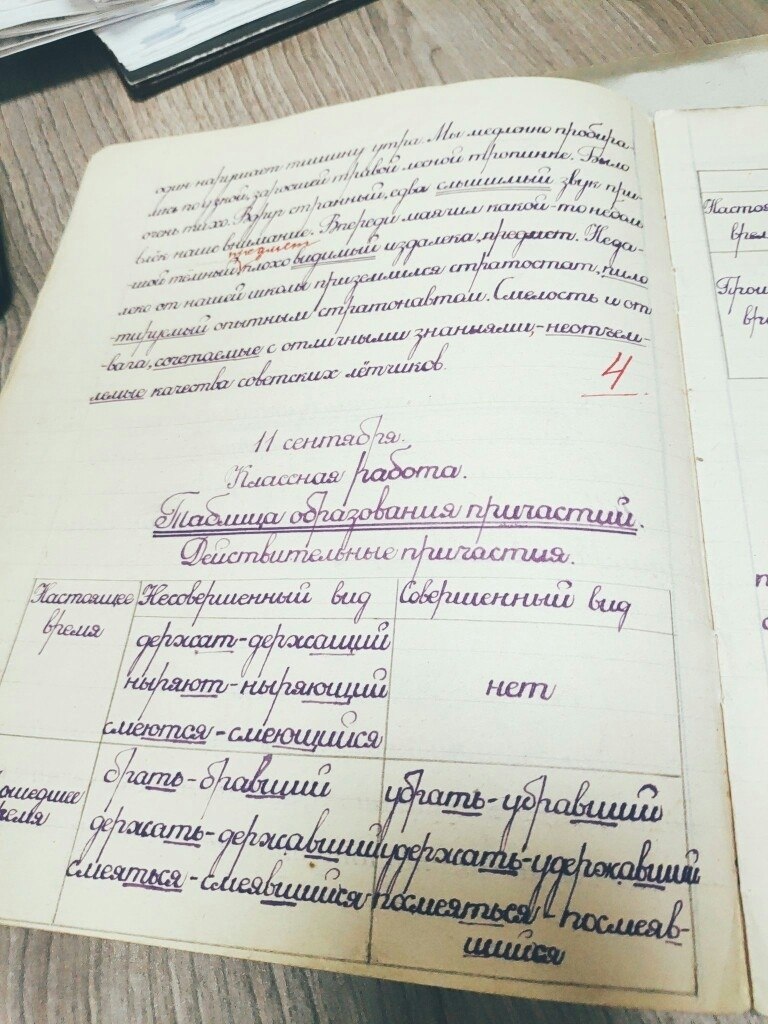 один нарушает тишину утра. Мы медленно пробира-
лись по узкой, заросшей травой лесной тропинке. Было
очень тихо. Вдруг странный, едва слышимый звук при-
влёк наше внимание. Впереди маячил какой-то неболь
предмет
-шой тёмный, плохо видимый издалека, предмет. Неда-
леко от нашей школы приземлился стратостат, пило
-тируемый опытным стратонавтом. Смелость и от
-вага, сочетаемые с отличными знаньями,-неотъем-
лемые качества советских лётчиков.
4
11 сентября.
Классная работа.
Таблица образования причастий.
Действительные причастия.
Настоящее время
Несовершенный вид
Совершенный вид
держат-держащий
ныряют-ныряющий
смеются-смеющийся
нет
ошедшее
ремя
брать-бравший
держать-державший
смеяться-смеявшийся
убрать-убравший
удержать-удержавший
посмеяться-посмеяв-
шийся
Настоя
врем
Прои
вре